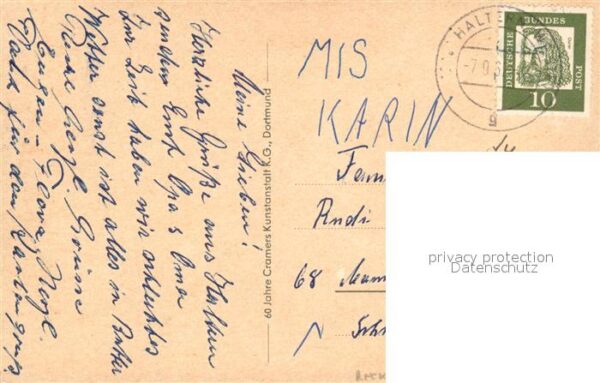 Meine Lieben!
Herzliche Grüße aus Haltern
senden Euch Opa & Oma
Zur Zeit haben wir schlechtes
Wetter sonst ist alles in Butter
Recht herzl. Grüsse
Eugen
Dank für den Kartengruß
60 Jahre Cramers Kunstanstalt K.G., Dortmund
MIS
KARIN
Rudi
68
HALTE
-7.9.6
g
DEUTSCHE BUNDES POST
10
privacy protection
Datenschutz